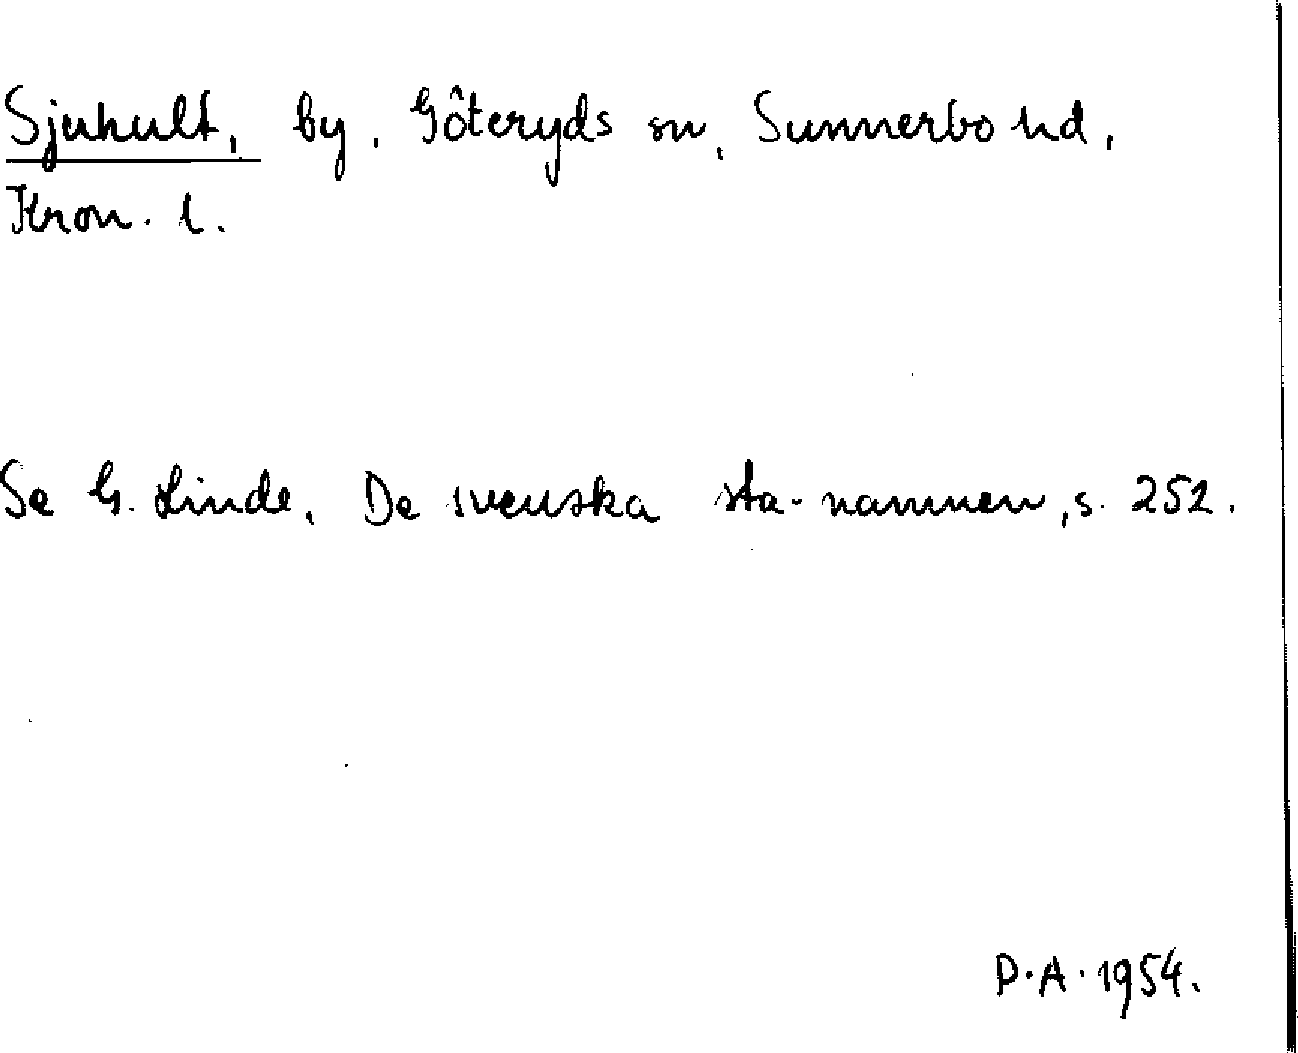 Sjuhult, by, Göteryds sn, Sunnerbo hd,
Kron. l.
Se G. Linde, De svenska sta-namnen, s. 252.
D.A. 1954.